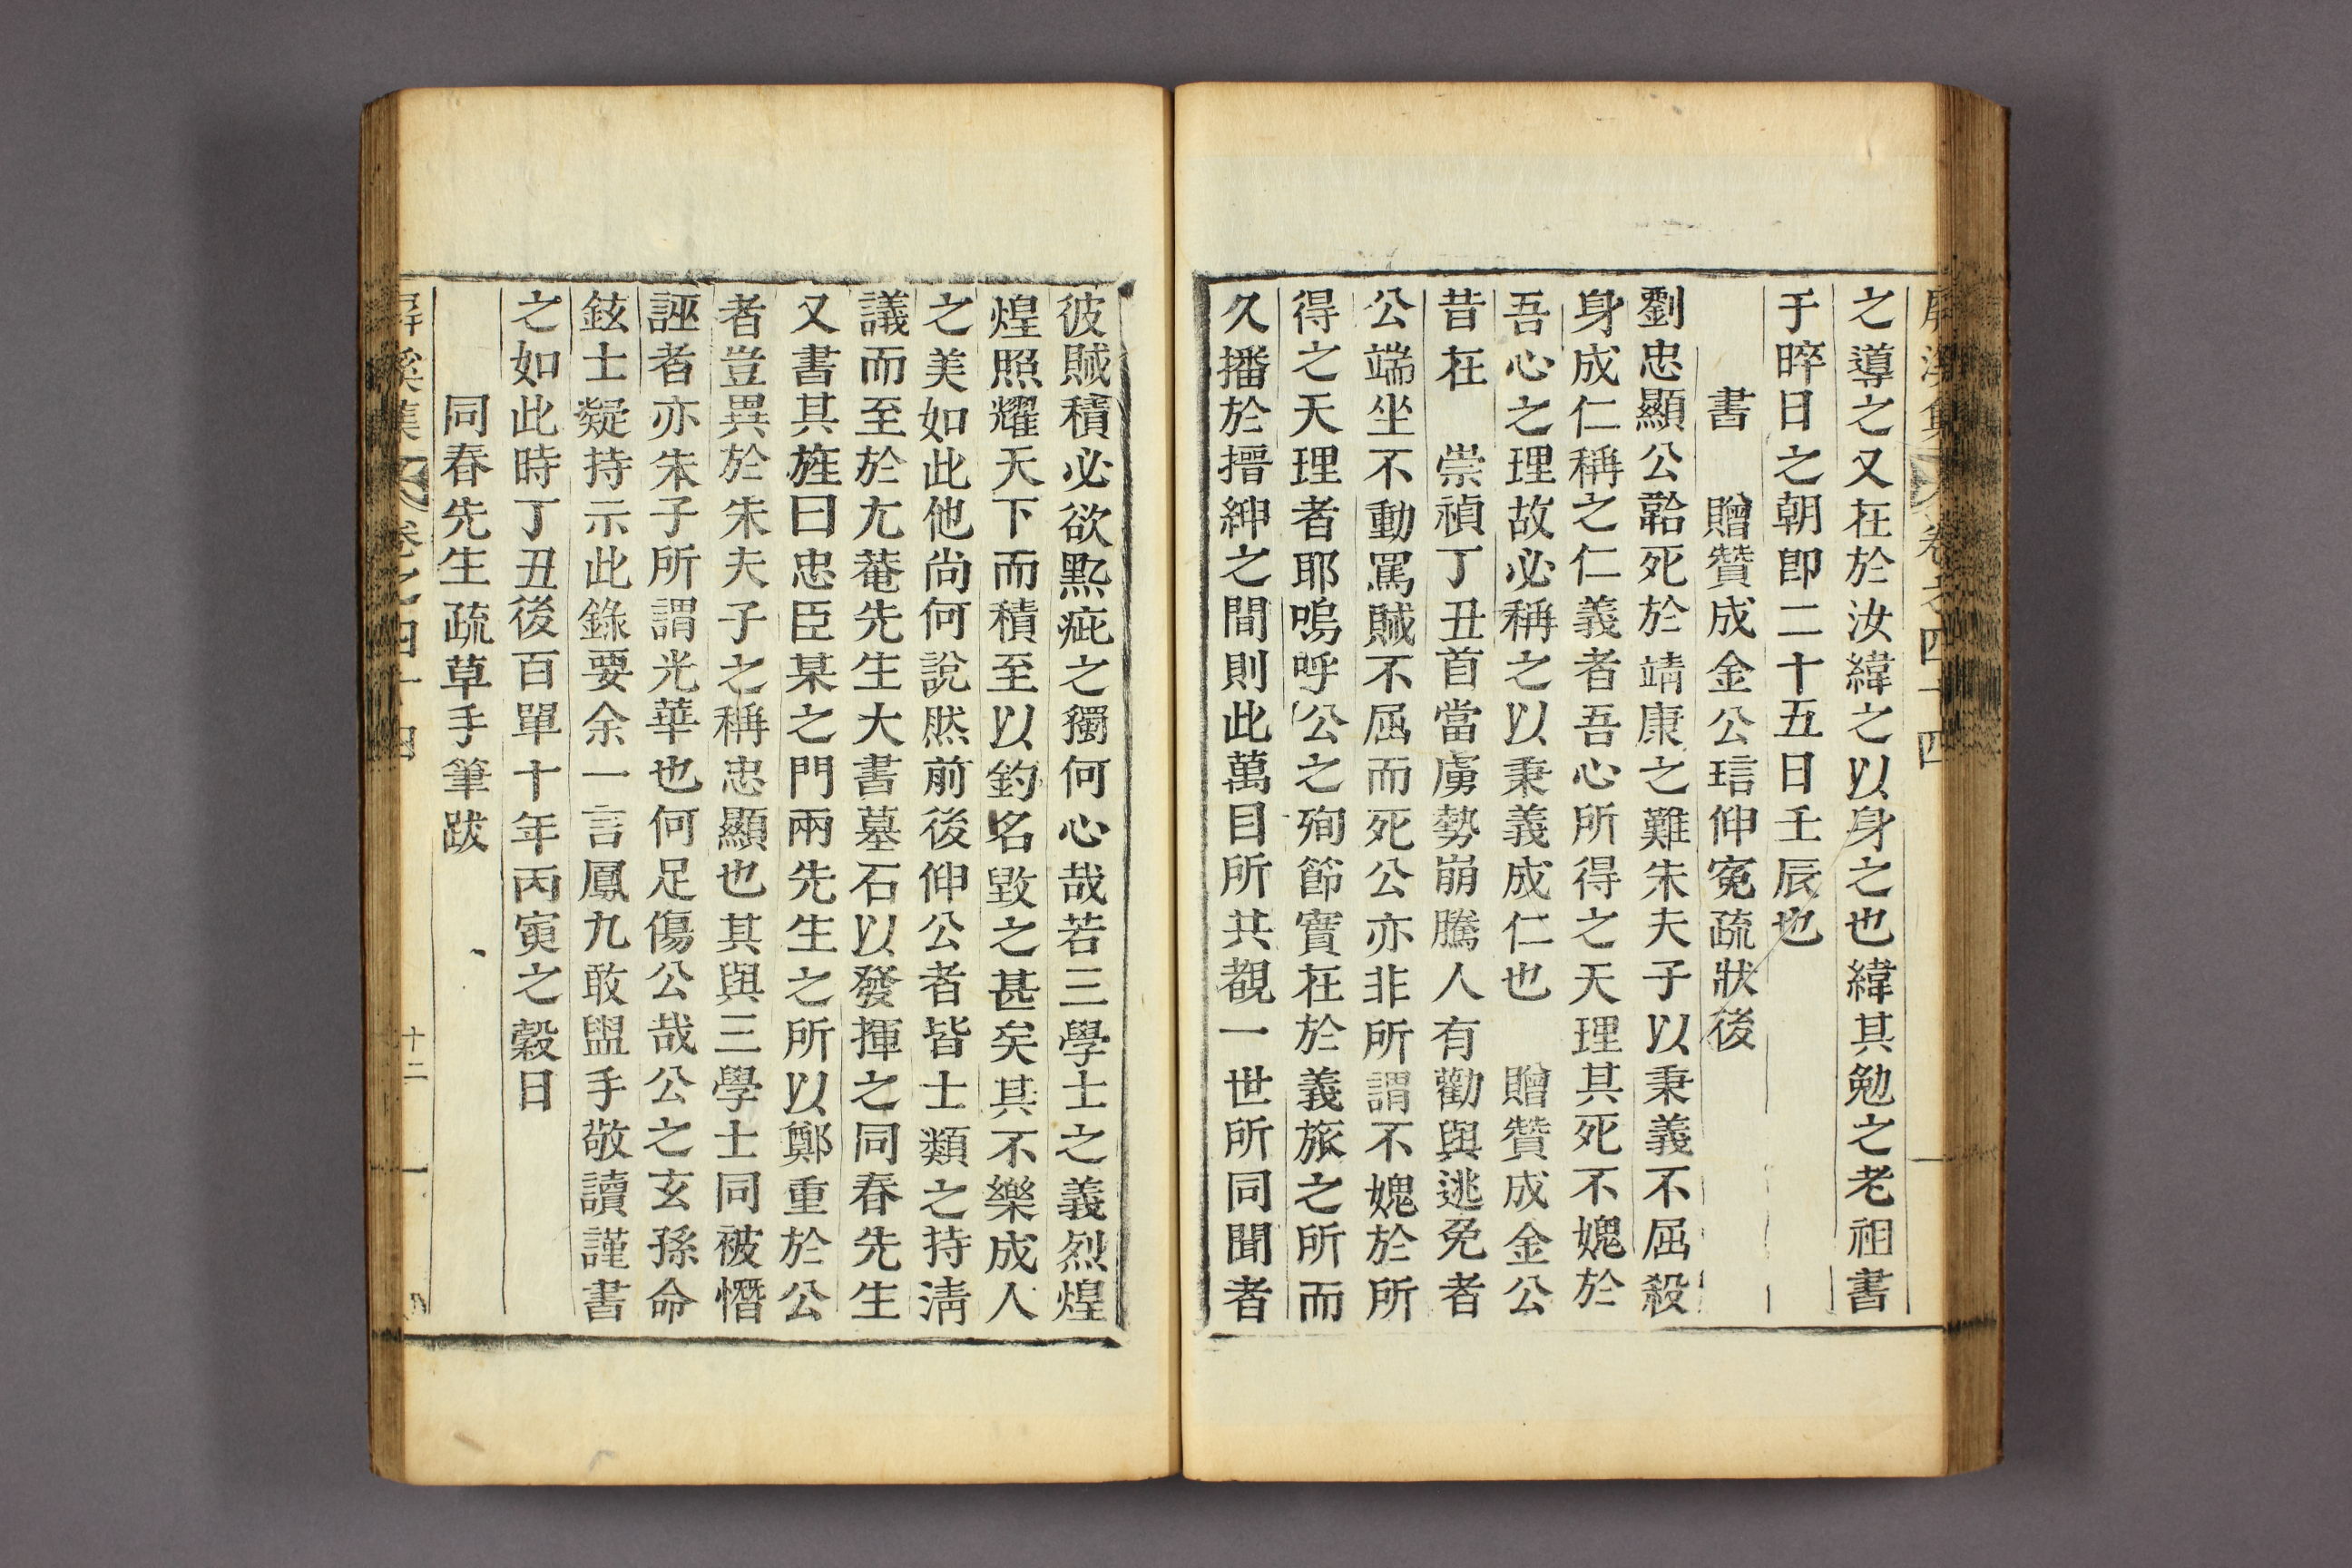 屛溪集 卷之四十四
之導之又在於汝緯之以身之也緯其勉之老祖書
于晬日之朝卽二十五日壬辰也
書 贈贊成金公琂伸寃疏狀後
劉忠顯公韐死於靖康之難朱夫子以秉義不屈殺
身成仁稱之仁義者吾心所得之天理其死不媿於
吾心之理故必稱之以秉義成仁也 贈贊成金公
昔在 崇禎丁丑首當虜勢崩騰人有勸與逃免者
公端坐不動罵賊不屈而死公亦非所謂不媿於所
得之天理者耶嗚呼公之殉節實在於義旅之所而
久播於搢紳之間則此萬目所共覩一世所同聞者
彼賊積必欲點疵之獨何心哉若三學士之義烈煌
煌照耀天下而積至以釣名毀之甚矣其不樂成人
之美如此他尙何說然前後伸公者皆士類之持淸
議而至於尤菴先生大書墓石以發揮之同春先生
又書其旌曰忠臣某之門兩先生之所以鄭重於公
者豈異於朱夫子之稱忠顯也其與三學士同被憯
誣者亦朱子所謂光華也何足傷公哉公之玄孫命
鉉士凝持示此錄要余一言鳳九敢盥手敬讀謹書
之如此時丁丑後百單十年丙寅之穀日
同春先生疏草手筆跋
屛溪集 卷之四十四 十二